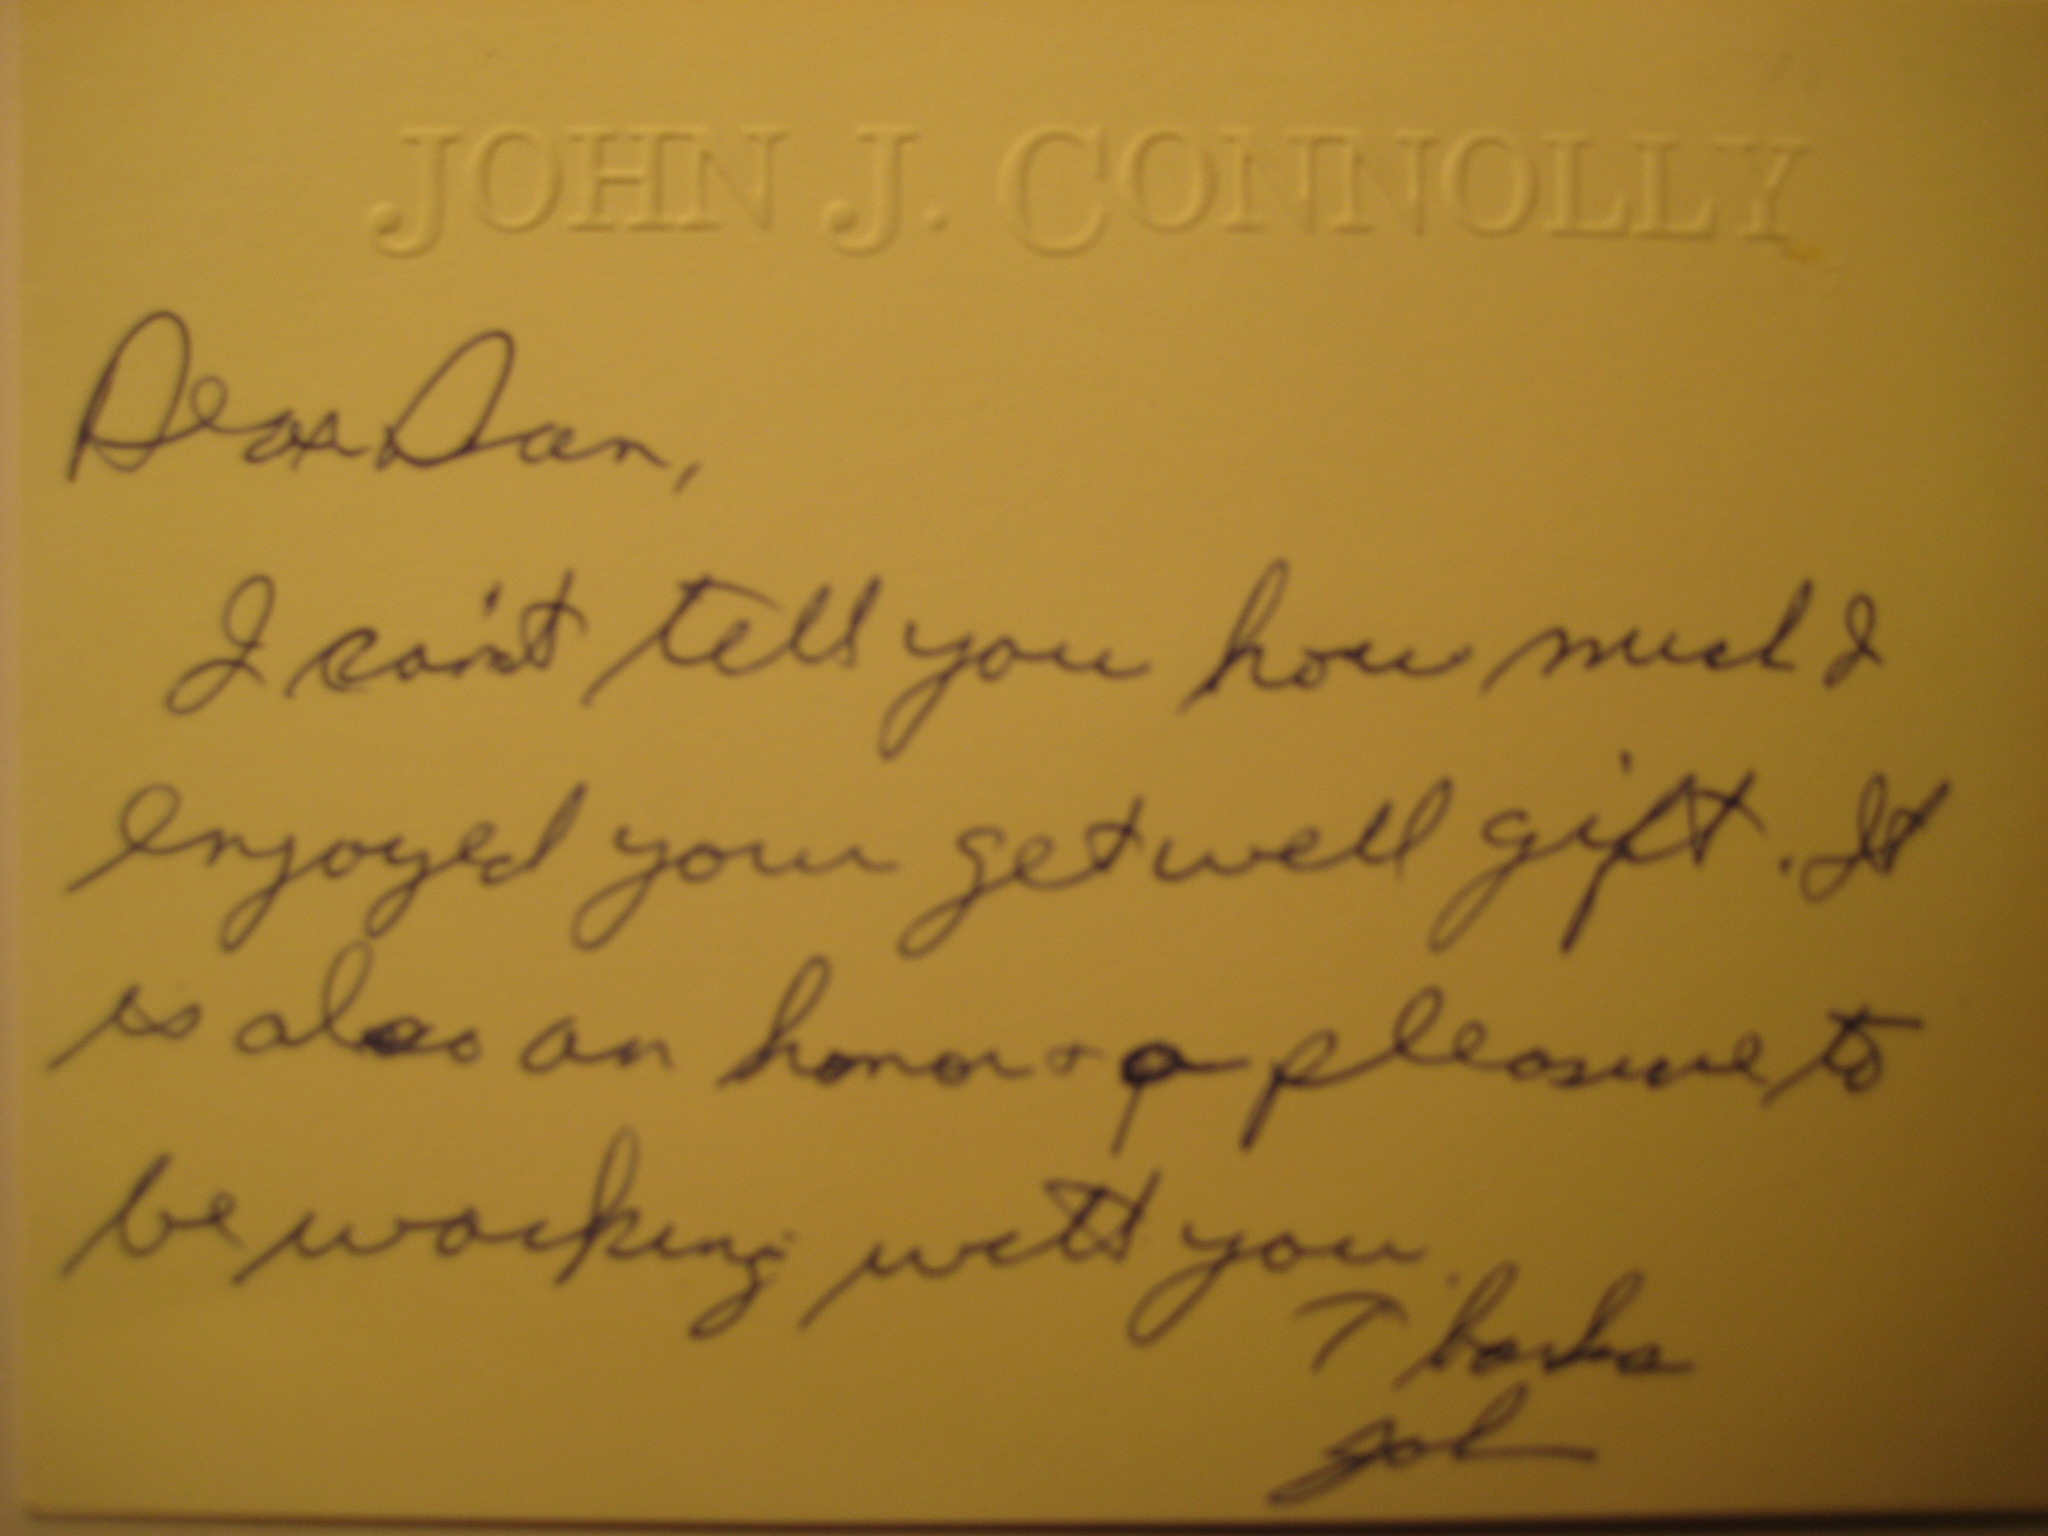 JOHN J. CONNOLLY
Dear Dan,
I can't tell you how much I
enjoyed your get well gift. It
is also an honor + a pleasure to
be working with you.
Thanks
John